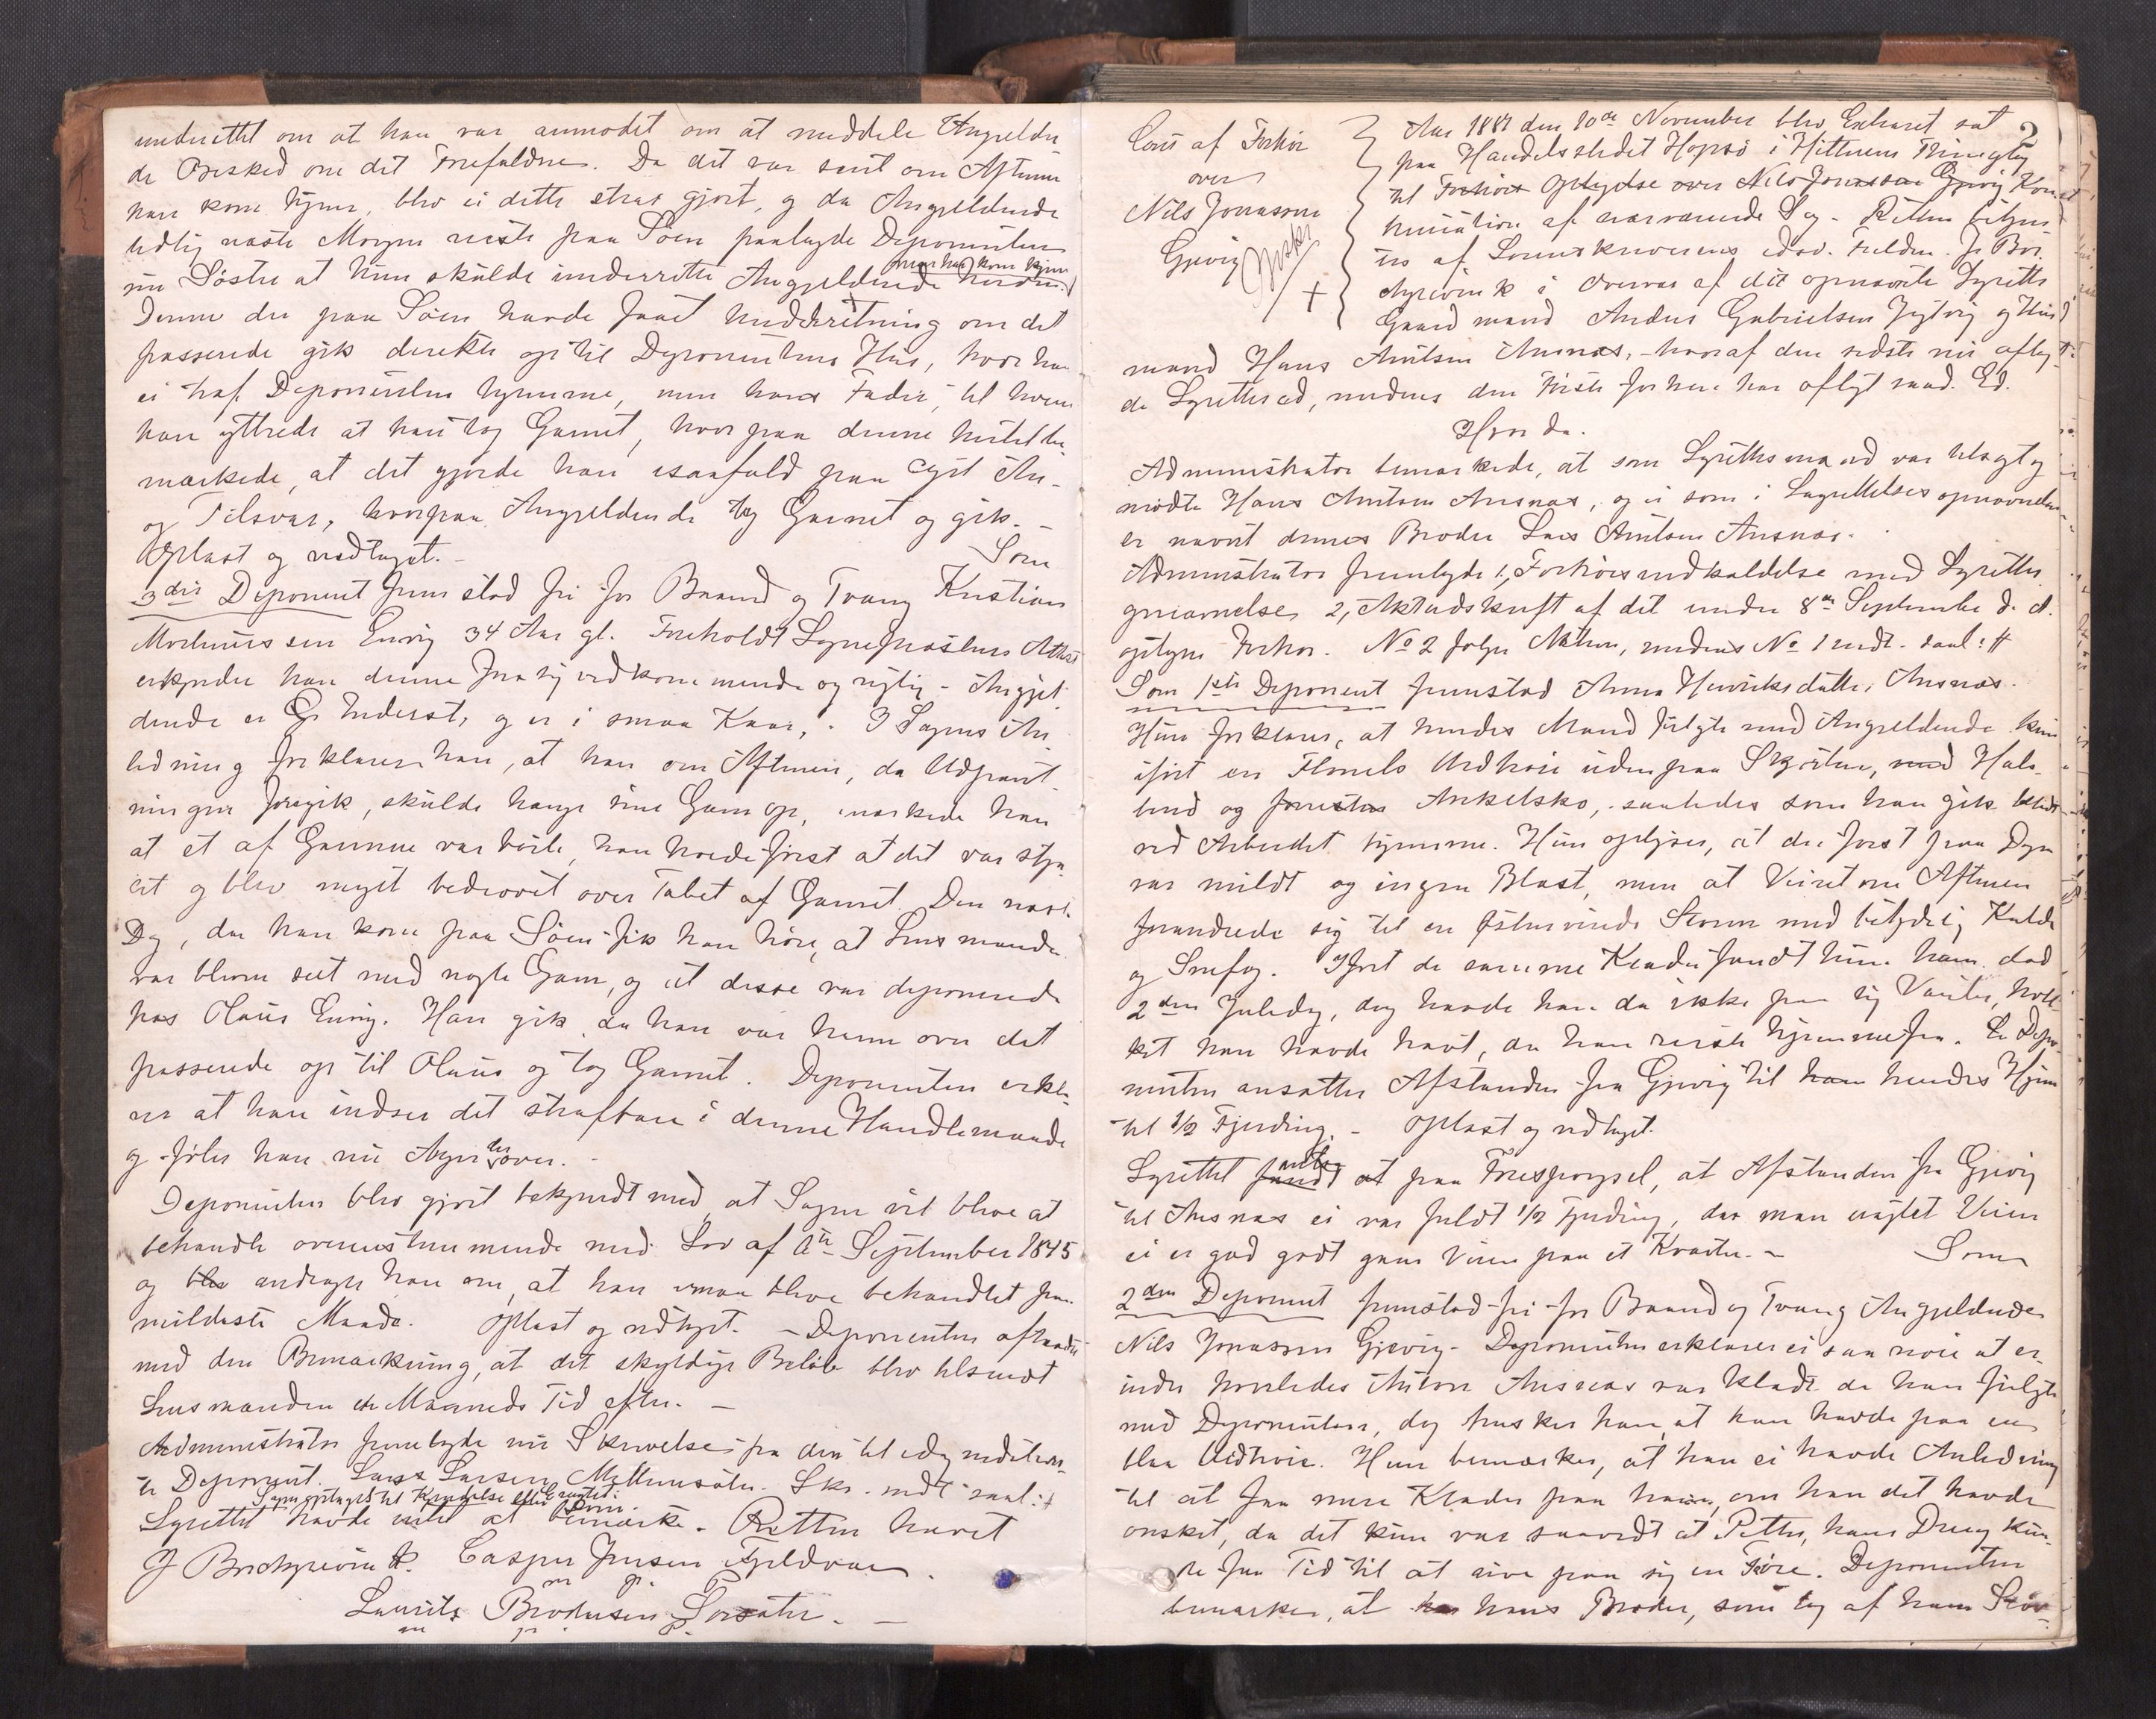 underrettet om at han var anmodet om at meddele Angjelden
de Besked om det Forefaldne. Da det var sent om Aftenen
han kom hjem, blev ei dette strax gjort, og da Angjeldende
tidlig næste Morgen reiste paa Søen paalagde Deponenten
sin Søster at hun skulde underrette Angjeldende naar han kom hjem
Denne der paa Søen havde faaet Underretning om det
passerede gik direkte op til Deponentens Hus, hvor han
ei traf Deponenten hjemme, men hans Fader, til hvem
han yttrede at han tog Garnet, hvorpaa denne
mærkede, at det gjorde han isaafald paa eget An-
og Tilsvar, hvorpaa Angjeldende tog Garnet og gik. -
Oplæst og vedtaget. - Som
3die Deponent fremstod fri for Baand og Tvang Kristian
Mortinussen Eivig 34 Aar gl. Foreholdt Sognepræstens Attest
erkjender han denne for sig vedkommende og rigtig - Angjel
dende er Inderst, og er i smaa Kaar, . I Sagens An
ledning forklarer han, at han om Aftenen, da Udpant
ningen foregik, skulde hænge sine Garn op, mærkede han
at et af Garnene var borte, han troede først at det var stjaa
let og blev meget bedrøvet over Tabet af Garnet. Den næste
Dag, da han kom paa Søen fik han høre, at Lensmanden
var bleven seet med nogle Garn, og at disse var deponerede
hos Olaus Eivig. Han gik da han var kommen over det
passerede op til Olaus og tog Garnet. Deponenten erklæ
rer at han indser det strafbare i denne Handlemaade
og føler han nu Anger herover. -
Deponenten blev gjort bekjendt med at Sagen vil blive at
behandle overensstemmende med Lov af 6te September 1845
og andrager han om, at han maa blive behandlet paa
mildeste Maade. Oplæst og vedtaget. - Deponenten aftraadte
med den Bemærkning, at det skyldige Beløb blev tilsendt
Lensmanden en Maaneds Tid efter. -
Administrator fremlagde nu Skrivelse fra den til idag
te Deponent Lars Larsen. Skr. indt. saal: #
Sagen optaget til Kjendelse eller Eragted.
Lagrettet havde intet at bemærke. Retten hævet
J Brodtgrevink. Casper Jensen Fjeldvær
m. p. P.
Laurits Brodersen Sørsæter. -
m. p. P.
2
Cont af Forhør
over
Nils Jonassen
Gjevig
+
Aar 1881 den 10de November blev Extraret sat
paa Handelsstedet Hopsø i Hitterens Thinglag
til Forhørs Optagelse over Nils Jonassen Gjevig Kon
tinuation af nærværende Sag. Retten betjen
tes af Sorenskriverens edsv. Fuldm. J. Bro
dtgrevink i Overvær af det opnævnte Lagrette
Gaardmand Anders Gabrielsen og Hus
mand Hans Antonsen Ansnæs, - hvoraf den sidste nu aflag
de Lagrettesed, medens den første forhen har aflagt saad. Ed.
Hvor da.
Administrator bemærkede, at som Lagrettesmand var tilsagt og
mødte Hans Antonsen Ansnæs, og ei som i Lagrettelses opnævnelsen
er nævnt dennes Broder Lars Antonsen Ansnæs.
Administrator fremlagde 1, Forhørsindkaldelse med Lagrettes
opnævnelse 2, Aktudskrift af det under 8de September d. A.
optagne Forhør. No 2 følger Akten, medens No 1 indt. saal: #
Som 1ste Deponent fremstod Anna Henriksdatter, Ansnæs.
Hun forklarer, at hendes Mand fulgte med Angjeldende kun
iført en Flonels Uldtrøie udenpaa Skjorten, med Hals-
bind og Ankelsko, saaledes som han gik klædt
ved Arbeidet hjemme. Hun oplyser, at det først paa Dagen
var mildt og ingen Blæst, men at Veiret om Aftenen
forandrede sig til en østenvinds Storm med betydelig Kulde
og Snefog. Iført de samme Klæder fandt hun ham død
2den Juledag, dog havde han da ikke paa sig Vanter, hvil
ket han havde havt, da han reiste hjemmefra. Depo
nenten ansætter Afstanden fra Gjevig til hendes Hjem
til 1/2 Fjerding. - Oplæst og vedtaget.
Lagrettet antog paa Forespørgsel, at Afstanden fra Gjevig
til Ansnæs ei var fuldt 1/2 Fjerding, da man uagtet Veien
ei er god godt gaar Veien paa et Kvarter. - Som
2den Deponent fremstod fri for Baand og Tvang Angjeldende
Nils Jonassen Gjevig. Deponenten erklærer ei saa nøie at er
indre hvorledes Anton Ansnæs var klædt da han fulgte
med Deponenten, dog husker han at han havde paa en
blaa Uldtrøie. Han bemærker, at han ei havde Anledning
til at faa mere Klæder paa ham, om han det havde
ønsket, da det kun var saavidt at Petter, hans Dreng kun-
de faa Tid til at rive paa sig en Trøie. Deponenten
bemærker, at hans Broder, som tog af ham Støv-